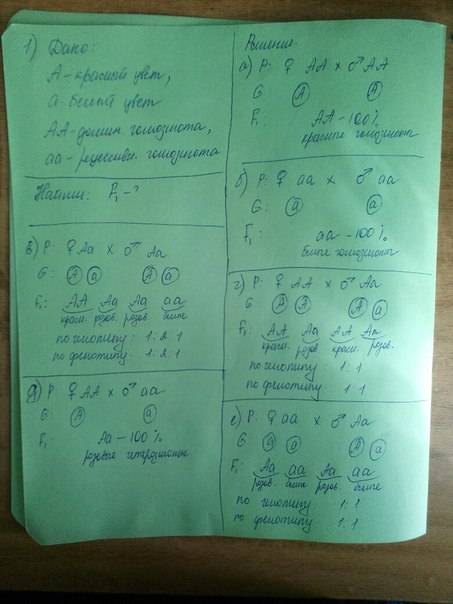 1) Дано:
А - красный цвет,
а - белый цвет
АА - домин. гомозигота,
аа - рецессивн. гомозигота
Найти: F₁ - ?
Решение.
а) Р: ♀ АА х ♂ АА
G: А А
F₁: АА - 100%
красные гомозиготы
б) Р: ♀ аа х ♂ аа
G: а а
F₁: аа - 100%
белые гомозиготы
в) Р: ♀ Аа х ♂ Аа
G: А а А а
F₁: АА Аа Аа аа
красн. розов. розов. белые
по генотипу: 1:2:1
по фенотипу: 1:2:1
г) Р: ♀ АА х ♂ Аа
G: А А А а
F₁: АА Аа АА Аа
красн. розов красн. розов.
по генотипу 1:1
по фенотипу: 1:1
д) Р: ♀ АА х ♂ аа
G: А а
F₁: Аа - 100%
розовые гетерозиготы
е) Р: ♀ аа х ♂ Аа
G: а а А а
F₁: Аа аа Аа аа
розов. белые розов. белые
по генотипу 1:1
по фенотипу 1:1